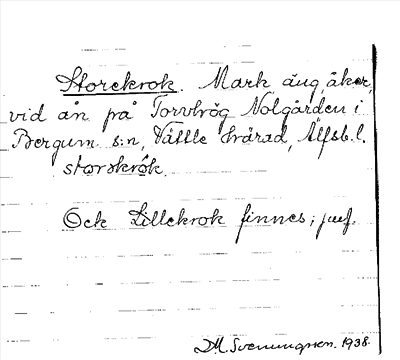 Storekrok. Mark äng, åker,
vid ån på Torvhög Nolgården i
Bergum s:n, Vättle härad, Älfsb. l.
storskrok.
Ock Lillekrok finnes; jmf.
D.M. Svenungsson. 1938.